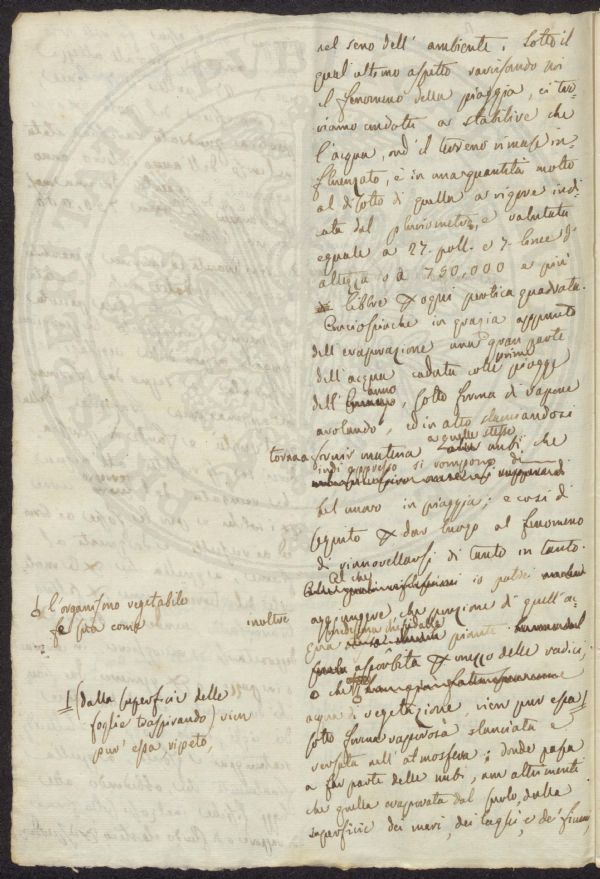 nel seno dell' ambiente. Sotto il
qual' ultimo aspetto ravvisando noi
il fenomeno della pioggia, ci tro-
viamo condotti a stabilire che
l'acqua, ond' il terreno rimase in-
fluenzato, è in una quantità molto
al di sotto di quella a rigore indi-
cata dal pluviometro, e valutata
eguale a 27. poll. e 7. linee d'
altezza o a 750,000 e più
libbre per ogni pertica quadrata.
Perciocché in grazia appunto
dell'evaporazione una gran parte
dell'acqua caduta colle prime piogge
dell' anno, sotto forma di vapore
avolando, ed in alto slanciandosi
torna a fornir materia a quelle stesse nubi, che
indi appresso si rompono di
bel nuovo in pioggia; e così di
seguito per dar luogo al fenomeno
di rinnovellarsi di tanto in tanto.
Al che io potrei
aggiungere, che porzione di quell'ac-
qua medesima dalle piante
assorbita per mezzo delle radici,
o che
acqua di vegetazione, vien pur essa
sotto forma vaporosa slanciata e
versata nell' atmosfera; donde passa
a far parte delle nubi, non altrimenti
che quella evaporata dal suolo, dalla
superficie dei mari, dei laghi, e de' fiumi,
l'organismo vegetabile inoltre
se sia come
(dalla superficie delle
foglie traspirando) vien
pur' essa